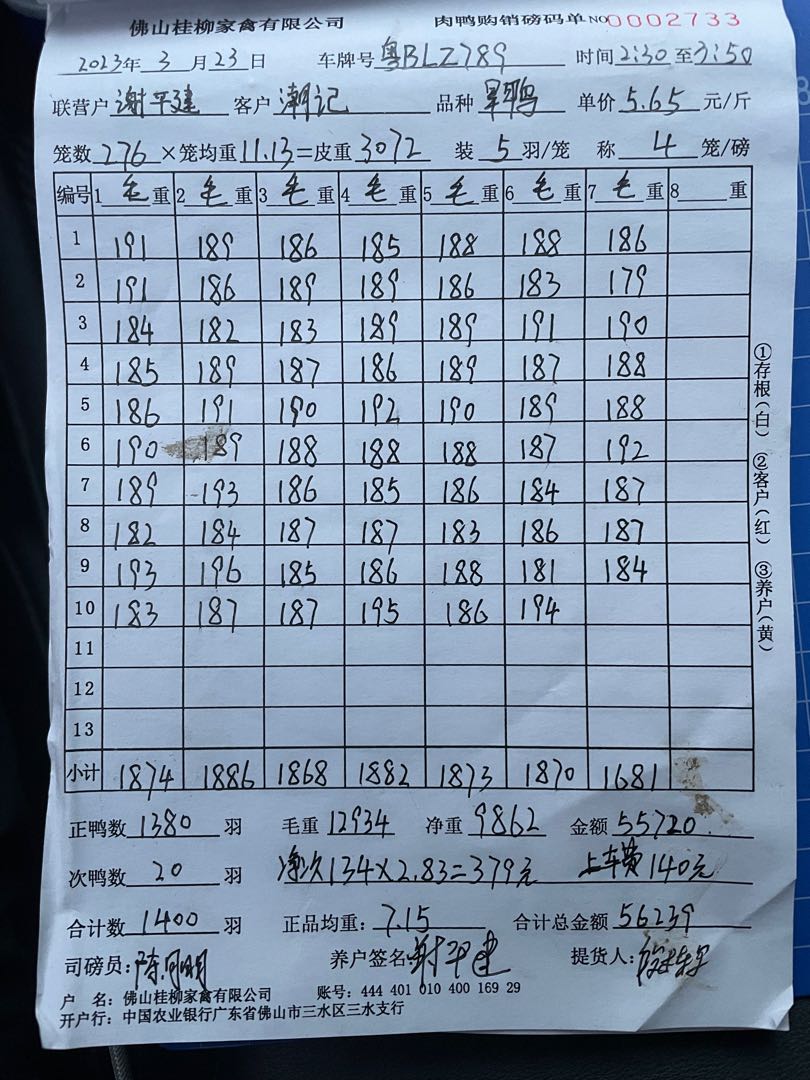 佛山桂柳家禽有限公司 肉鸭购销磅码单 NO 0002733
2023年 3 月 23 日 车牌号 粤BLZ789 时间 2:30 至 3:50
联营户 谢平建 客户 潮记 品种 旱鸭 单价 5.65 元/斤
笼数 276 ×笼均重 11.13 =皮重 3072 装 5 羽/笼 称 4 笼/磅
编号 1 毛 重 2 毛 重 3 毛 重 4 毛 重 5 毛 重 6 毛 重 7 毛 重 8 重
1 191 189 186 185 188 188 186
2 191 186 189 189 186 183 179
3 184 182 183 189 189 191 190
4 185 189 187 186 189 187 188
5 186 191 190 192 190 189 188
6 190 189 188 188 188 187 192
7 189 193 186 185 186 184 187
8 182 184 187 187 183 186 187
9 193 196 185 186 188 181 184
10 183 187 187 195 186 194
11
12
13
小计 1874 1886 1868 1882 1873 1870 1681
①存根(白) ②客户(红) ③养户(黄)
正鸭数 1380 羽 毛重 12934 净重 9862 金额 55720
次鸭数 20 羽 净次134×2.83=379元 上车费140元
合计数 1400 羽 正品均重: 7.15 合计总金额 56239
司磅员: 养户签名: 谢平建 提货人:
户 名: 佛山桂柳家禽有限公司 账号: 444 401 010 400 169 29
开户行: 中国农业银行广东省佛山市三水区三水支行